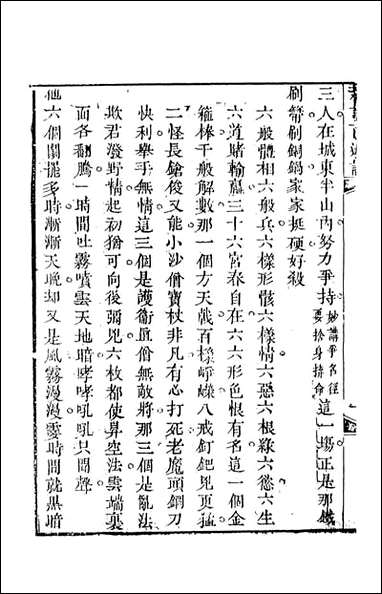 三人在城東半山內努力爭持妙講爭名徑要捨身拚命這一塲正是那鐵
刷箒刷銅鍋家家挺硬好殺
六般體相六般兵六樣形骸六樣情六惡六根緣六慾六生
六道賭輸贏三十六宮春自在六六形色恨有名這一個金
箍棒千般解數那一個方天戟百樣崢嶸八戒釘鈀兇更猛
二怪長鎗俊又能小沙僧寶杖非凡有心打死老魔頭鋼刀
快利舉手無情這三個是護衛眞僧無敵將那三個是亂法
欺君潑野情起初猶可向後弱兇六枚都使昇空法雲端裏
面各翻騰一時間吐霧噴雲天地暗哮哮吼吼只聞聲
他六個鬪罷多時漸漸天晚却又是風霧漫漫霎時間就黑暗